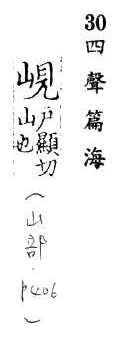 30四聲篇海
峴戶顯切
山也
(山部.
P406)